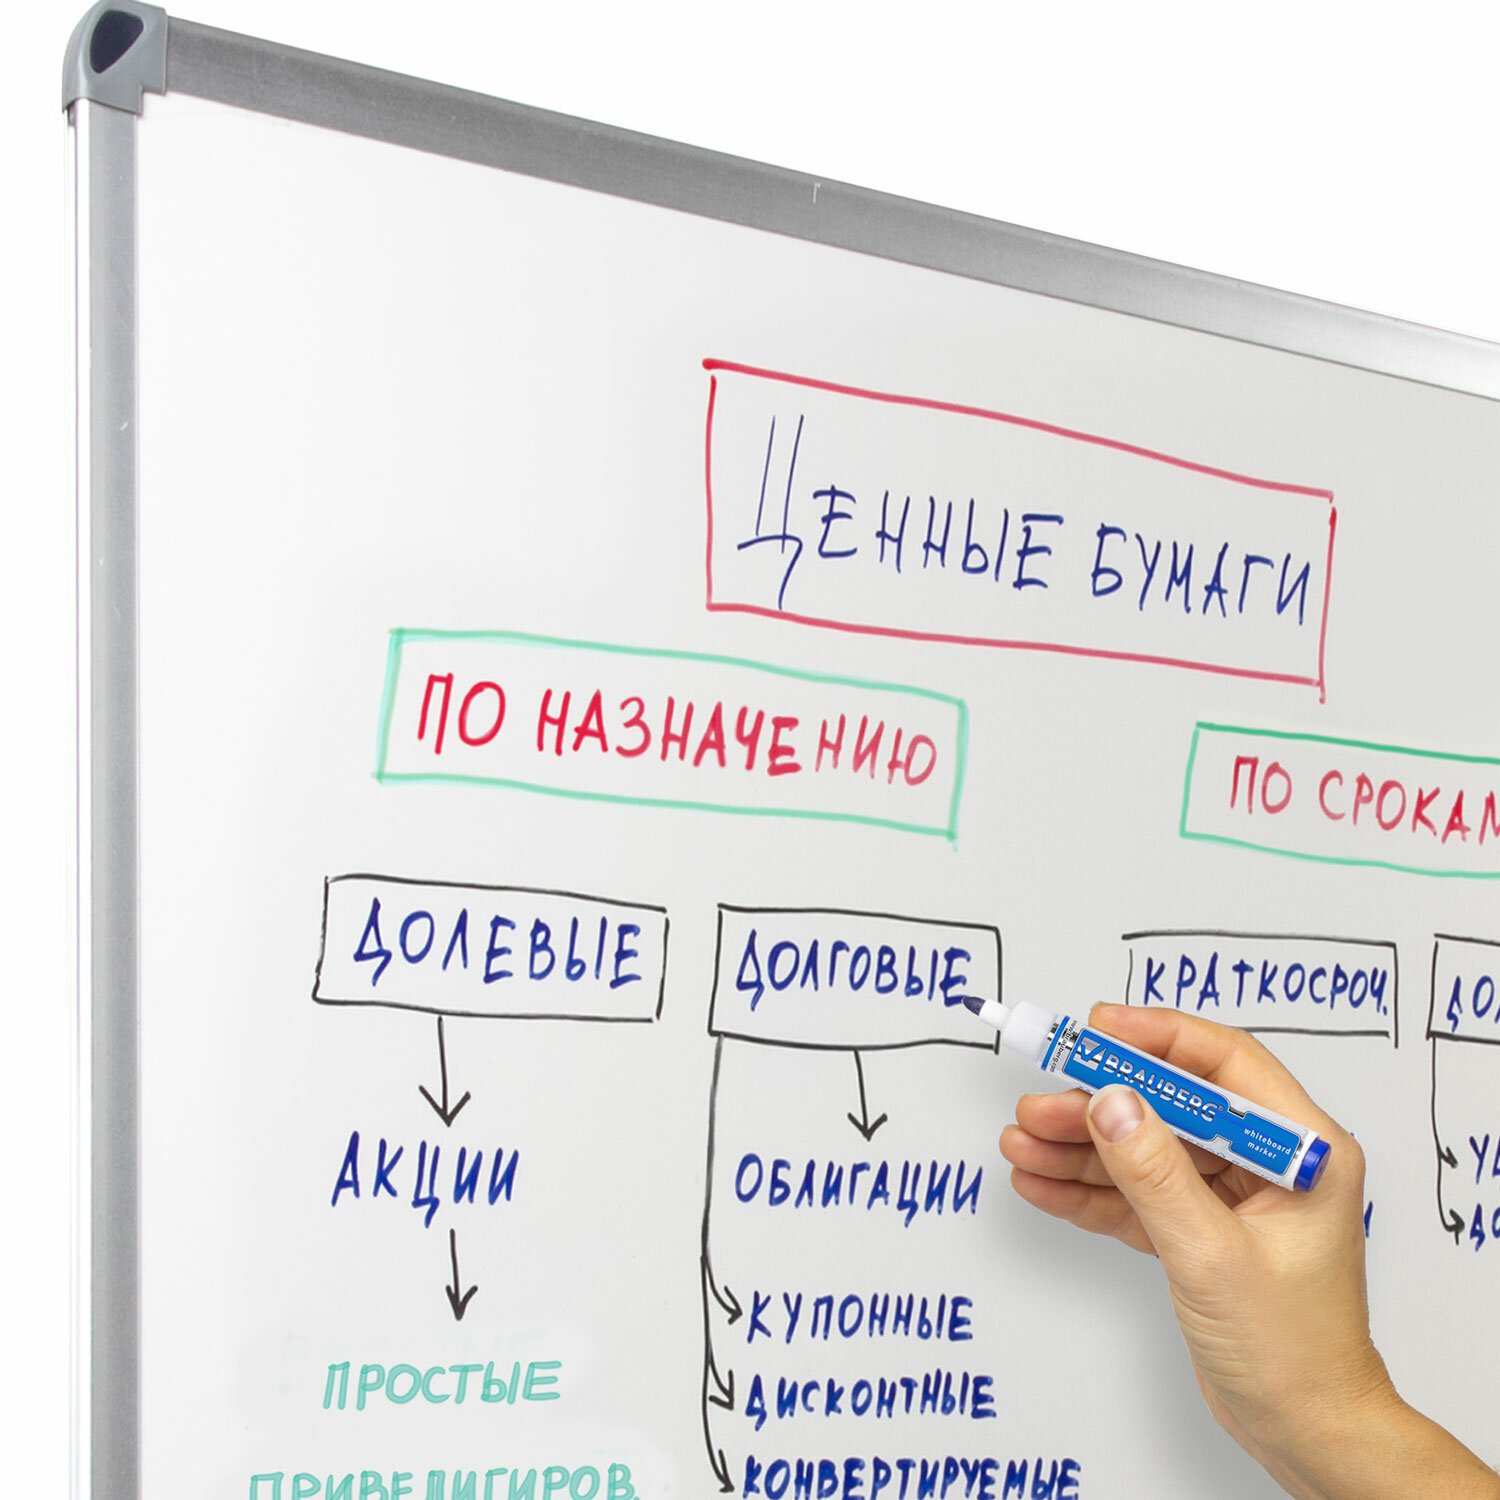 ЦЕННЫЕ БУМАГИ
ПО НАЗНАЧЕНИЮ
ПО СРОКАМ
ДОЛЕВЫЕ
ДОЛГОВЫЕ
КРАТКОСРОЧ.
BRAUBERG
whiteboard
marker
АКЦИИ
ОБЛИГАЦИИ
КУПОННЫЕ
ДИСКОНТНЫЕ
КОНВЕРТИРУЕМЫЕ
ПРОСТЫЕ
ПРИВЕЛИГИРОВ.